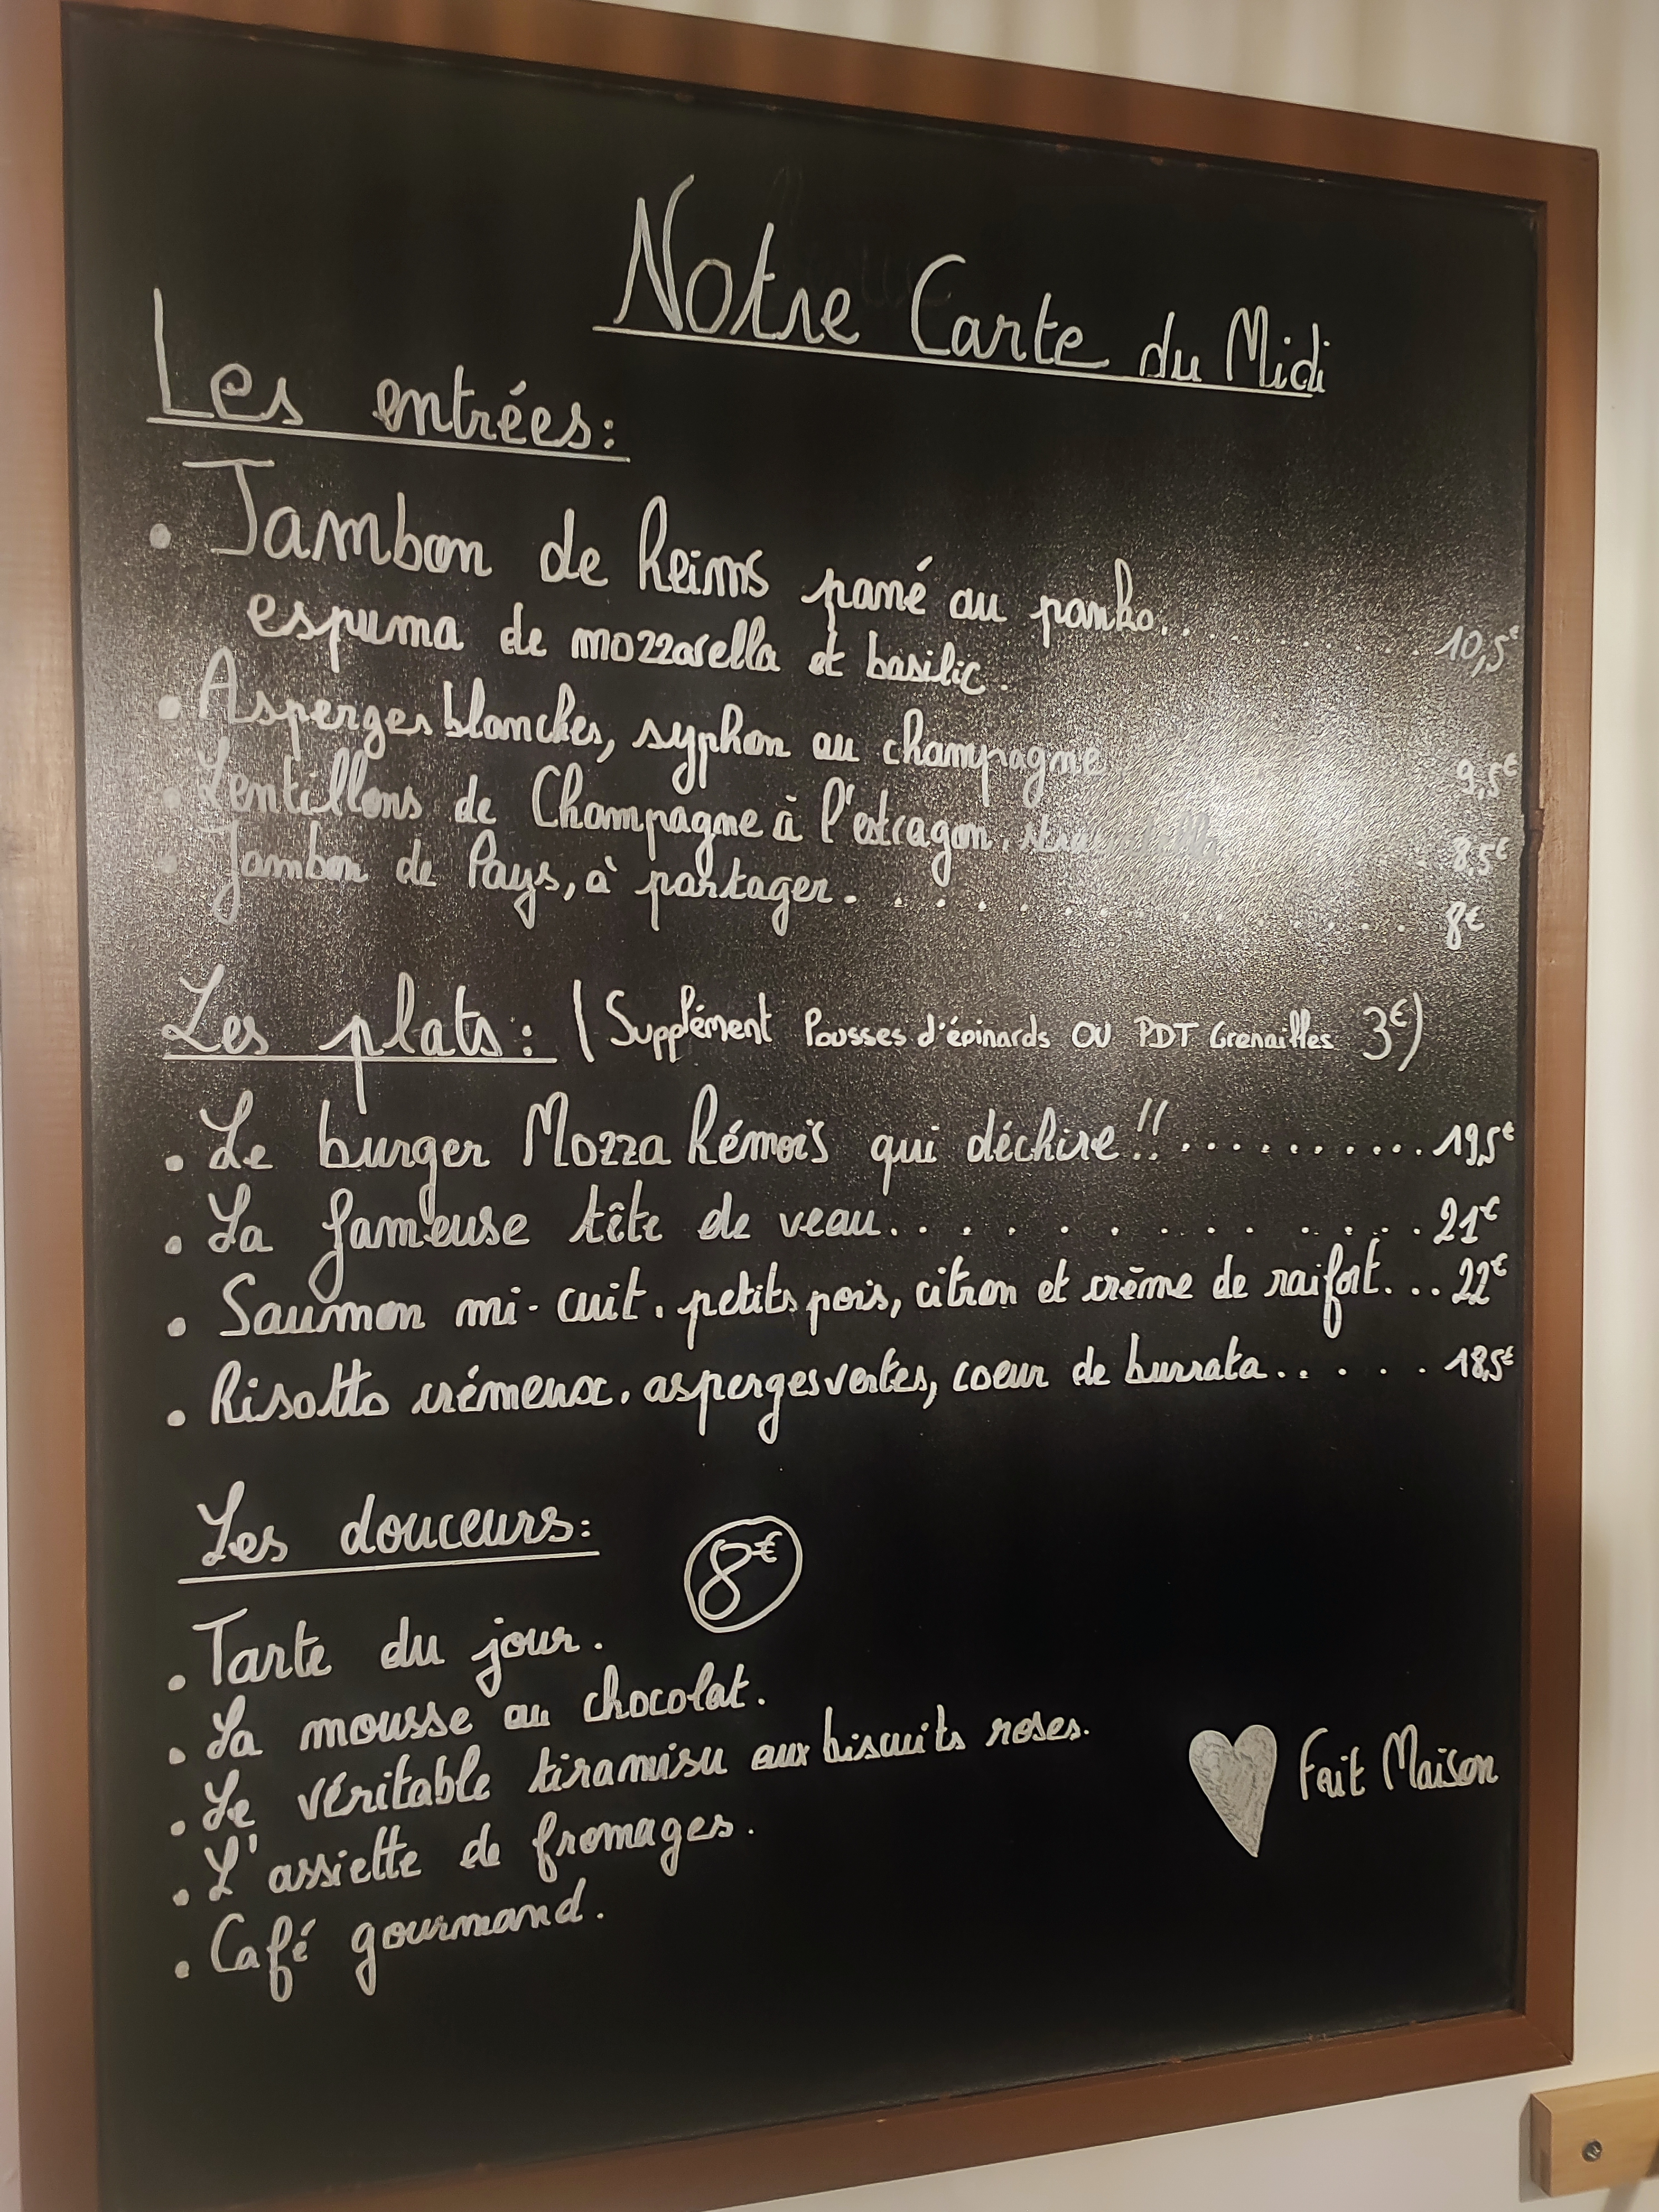 Notre Carte du Midi
Les entrées:
• Jambon de Reims pané au panko.. ........ 10,5€
espuma de mozzarella et basilic.
• Asperges blanches, syphon au champagne 9,5€
• Lentillons de Champagne à l'estragon, 8,5€
• Jambon de Pays, à partager. ............. 8€
Les plats: (Supplément Pousses d'épinards OU PDT Grenailles 3€)
• Le burger Mozza Rémois qui déchire!!.......... 19,5€
• La fameuse tête de veau............ 21€
• Saumon mi-cuit. petits pois, citron et crème de raifort... 22€
• Risotto crémeux. asperges vertes, coeur de burrata..... 18,5€
Les douceurs: 8€
• Tarte du jour.
• La mousse au chocolat.
• Le véritable tiramisu aux biscuits roses.
Fait Maison
• L'assiette de fromages.
• Café gourmand.